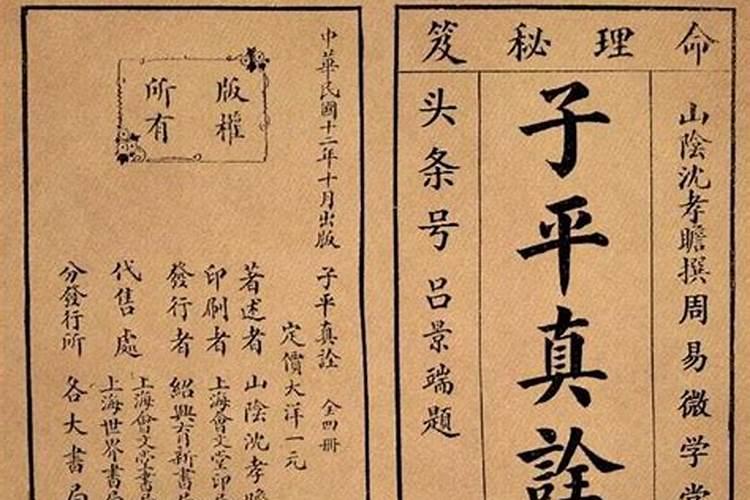 命理秘笈
山陰沈孝瞻撰周易微学堂
子平真詮
头条号吕景端題
中華民國十二年十月出版
版權
所有
子平真詮 全四冊
定價大洋一元
著述者 山陰沈孝瞻
印刷者 上海會文堂印
發行者 紹興育新書局
上海會文堂書局
代售處 上海世界書局
分發行所 各大書局